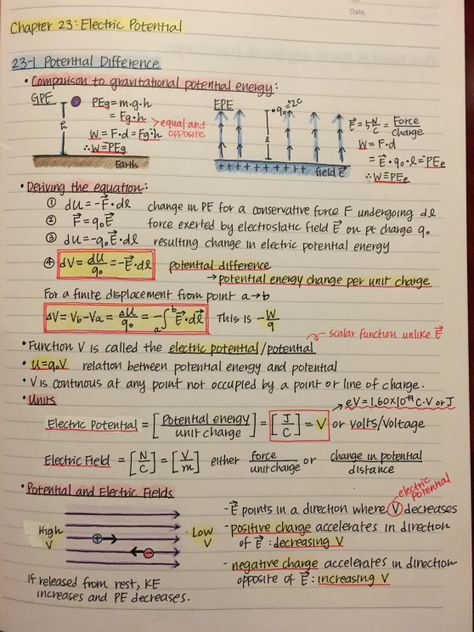 Date.
No.
Chapter 23: Electric Potential
23-1 Potential Difference
• Comparison to gravitational potential energy:
GPE
PEg = m·g·h
= Fg·h
W = F·d = Fg·h
∴ W = PEg
h
Earth
equal and opposite
EPE
+2C
+ + + + + + + + + +
field E⃗
E⃗ = 5 N/C = Force/charge
W = F·d
= E⃗·q₀·l = PEe
∴ W = PEe
• Deriving the equation:
① dU = -F⃗·dl⃗ change in PE for a conservative force F undergoing dl
② F⃗ = q₀E⃗ force exerted by electroslatic field E⃗ on pt charge q₀
③ dU = -q₀E⃗·dl⃗ resulting change in electric potential energy
④ dV = dU/q₀ = -E⃗·dl⃗ potential difference
→ potential energy change per unit charge
For a finite displacement from point a→b
ΔV = Vb - Va = ΔU/q₀ = -∫ₐᵇ E⃗·dl⃗ This is -W/q
→ scalar function unlike E⃗
• Function V is called the electric potential/potential
• U = q₀V relation between potential energy and potential
• V is continous at any point not occupied by a point or line of charge.
• Units
eV = 1.60×10⁻¹⁹ C·V or J
Electric Potential = [Potential energy/unit charge] = [J/C] = V or volts/Voltage
Electric Field = [N/C] = [V/m] either force/unit charge or change in potential/distance
• Potential and Electric Fields
High V
+
-
Low V
If released from rest, KE
increases and PE decreases.
electric potential
- E⃗ points in a direction where V decreases
- positive charge accelerates in direction
of E⃗: decreasing V
- negative charge accelerates in direction
opposite of E⃗: increasing V